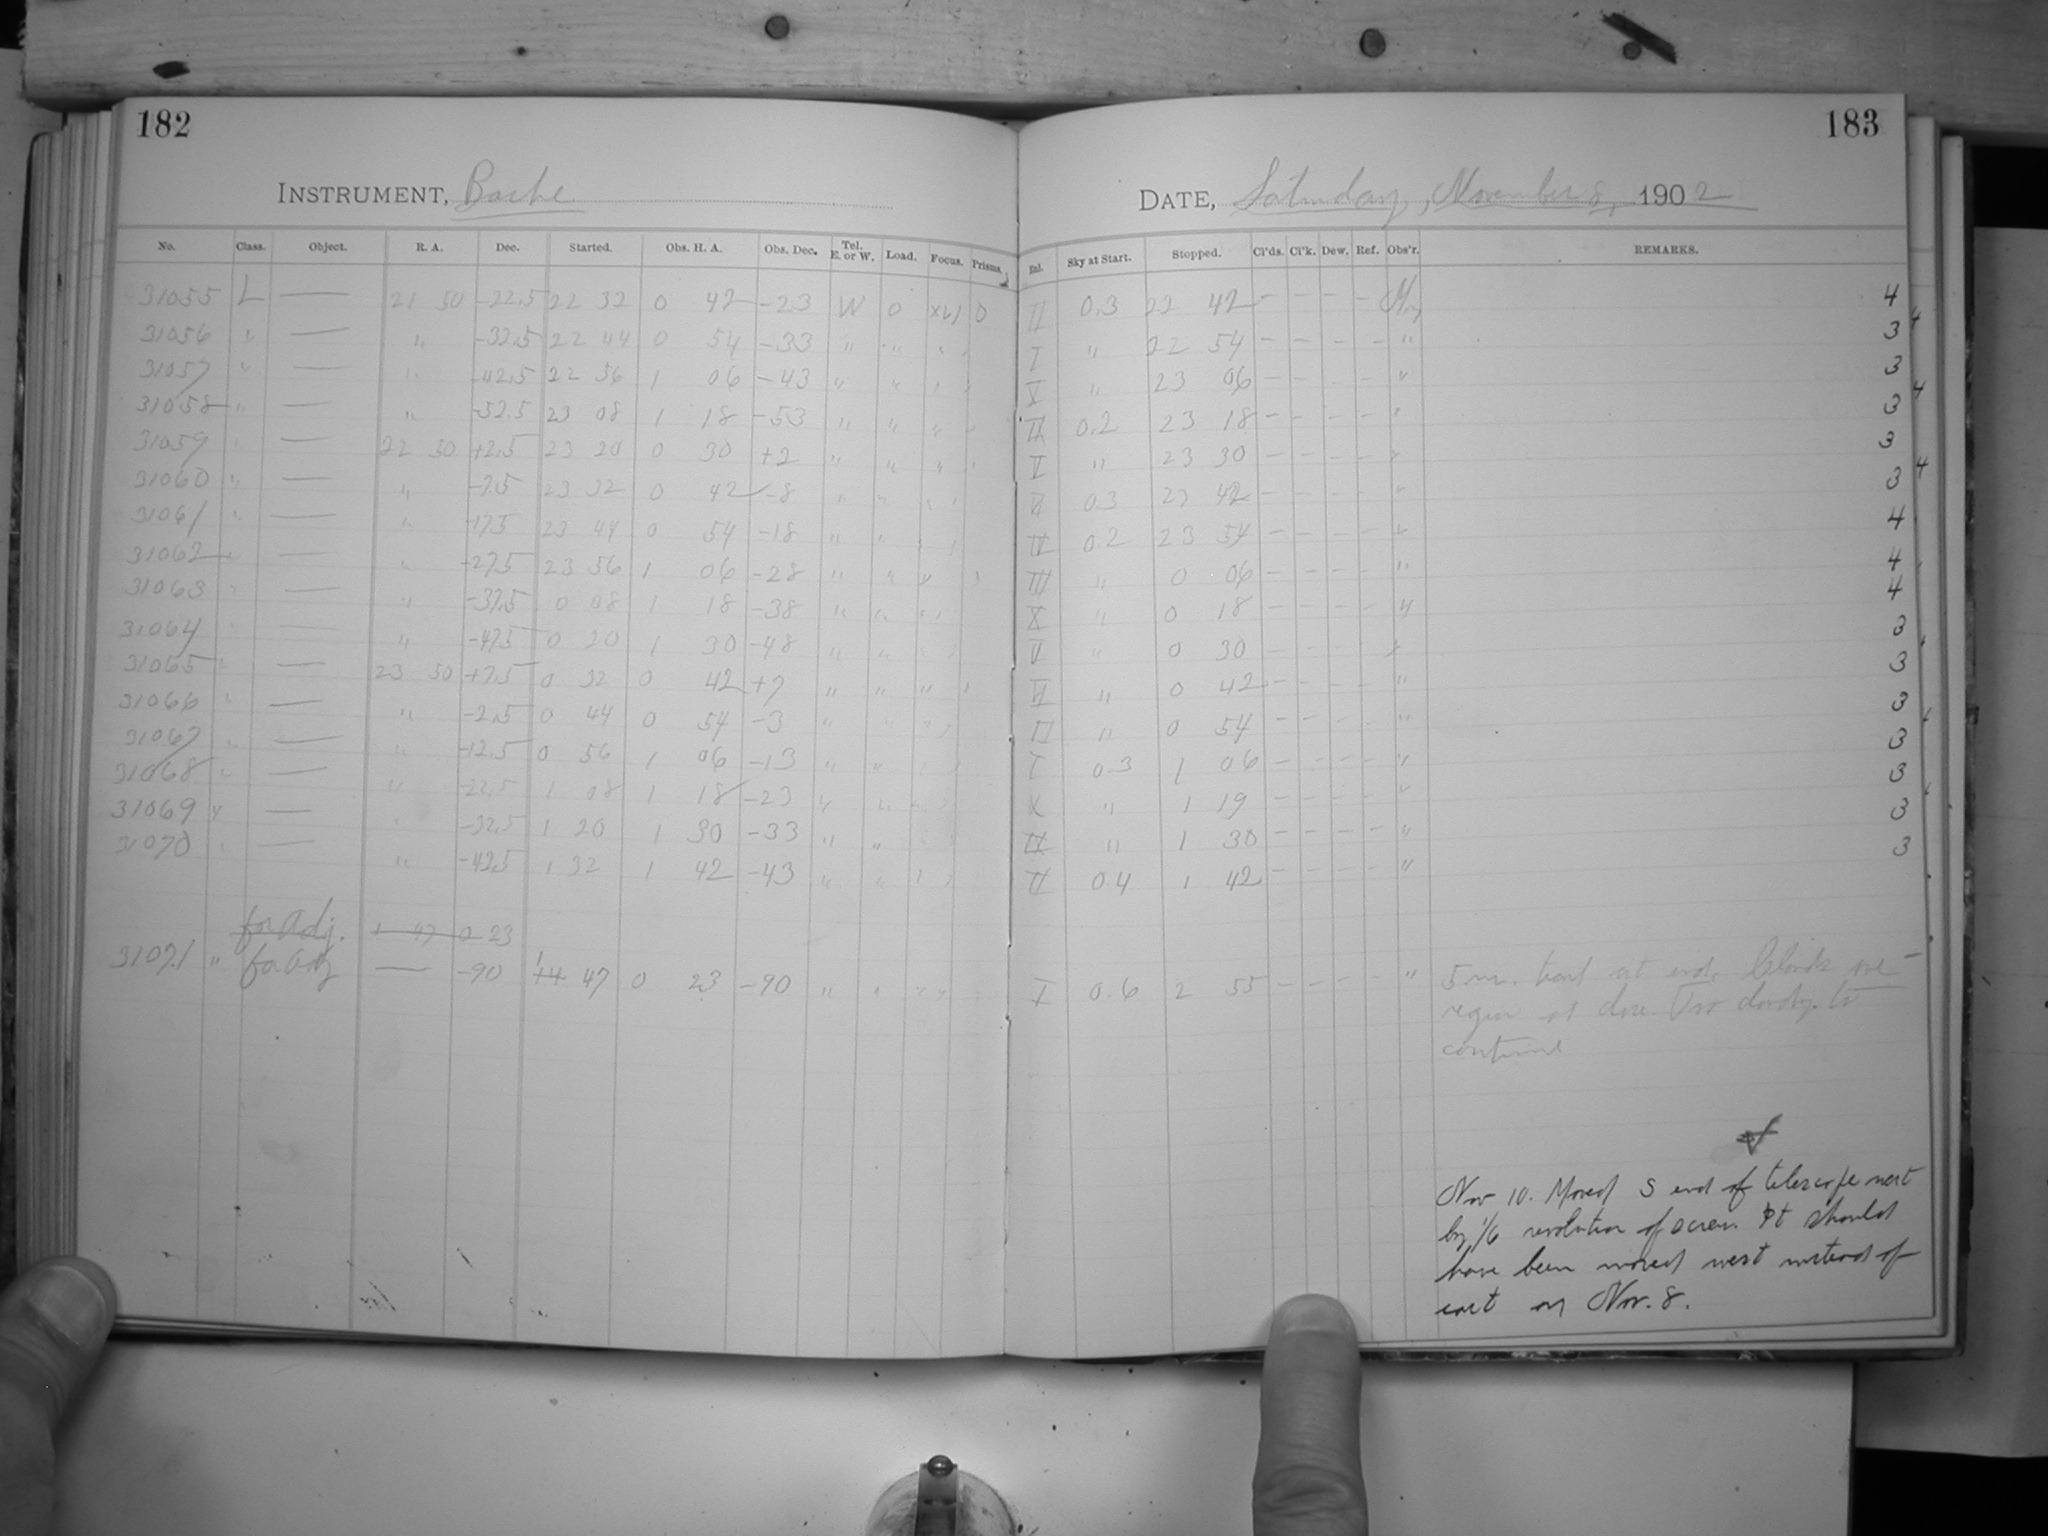 182
INSTRUMENT, Bache
No. Class. Object. R. A. Dec. Started. Obs. H. A. Obs. Dec. Tel. E. or W. Load. Focus. Prisms.
31055 L — 21 50 -22.5 22 32 0 42 -23 W 0 0
31056 " — " -32.5 22 44 0 54 -33 " " " "
31057 " — " -42.5 22 56 1 06 -43 " " " "
31058 " — " -52.5 23 08 1 18 -53 " " " "
31059 " — 22 50 +2.5 23 20 0 30 +2 " " " "
31060 " — " -7.5 23 32 0 42 -8 " " " "
31061 " — " -17.5 23 44 0 54 -18 " " " "
31062 " — " -27.5 23 56 1 06 -28 " " " "
31063 " — " -37.5 0 08 1 18 -38 " " " "
31064 " — " -47.5 0 20 1 30 -48 " " " "
31065 " — 23 50 +7.5 0 32 0 42 +7 " " " "
31066 " — " -2.5 0 44 0 54 -3 " " " "
31067 " — " -12.5 0 56 1 06 -13 " " " "
31068 " — " -22.5 1 08 1 18 -23 " " " "
31069 " — " -32.5 1 20 1 30 -33 " " " "
31070 " — " -42.5 1 32 1 42 -43 " " " "
for Adj. 1 47 0 23
31071 " for Adj — -90 1 47 0 23 -90 " " " "
183
DATE, Saturday, November 8, 1902
Enl. Sky at Start. Stopped. Cl'ds. Cl'k. Dew. Ref. Obs'r. REMARKS.
0.3 22 42 - - - - 4
I " 22 54 - - - - " 3
V " 23 06 - - - - " 3
0.2 23 18 - - - - " 3
V " 23 30 - - - - " 3
0.3 23 42 - - - - " 3
0.2 23 54 - - - - " 4
III " 0 06 - - - - " 4
X " 0 18 - - - - " 4
" 0 30 - - - - " 3
" 0 42 - - - - " 3
" 0 54 - - - - " 3
0.3 1 06 - - - - " 3
X " 1 19 - - - - " 3
" 1 30 - - - - " 3
0.4 1 42 - - - - " 3
0.6 2 55 - - - - " 5 m. trail at end. Clouds over
region at close. Too cloudy to
continue
Nov 10. Moved S end of telescope west
by 1/6 revolution of screw. It should
have been moved west instead of
east on Nov. 8.